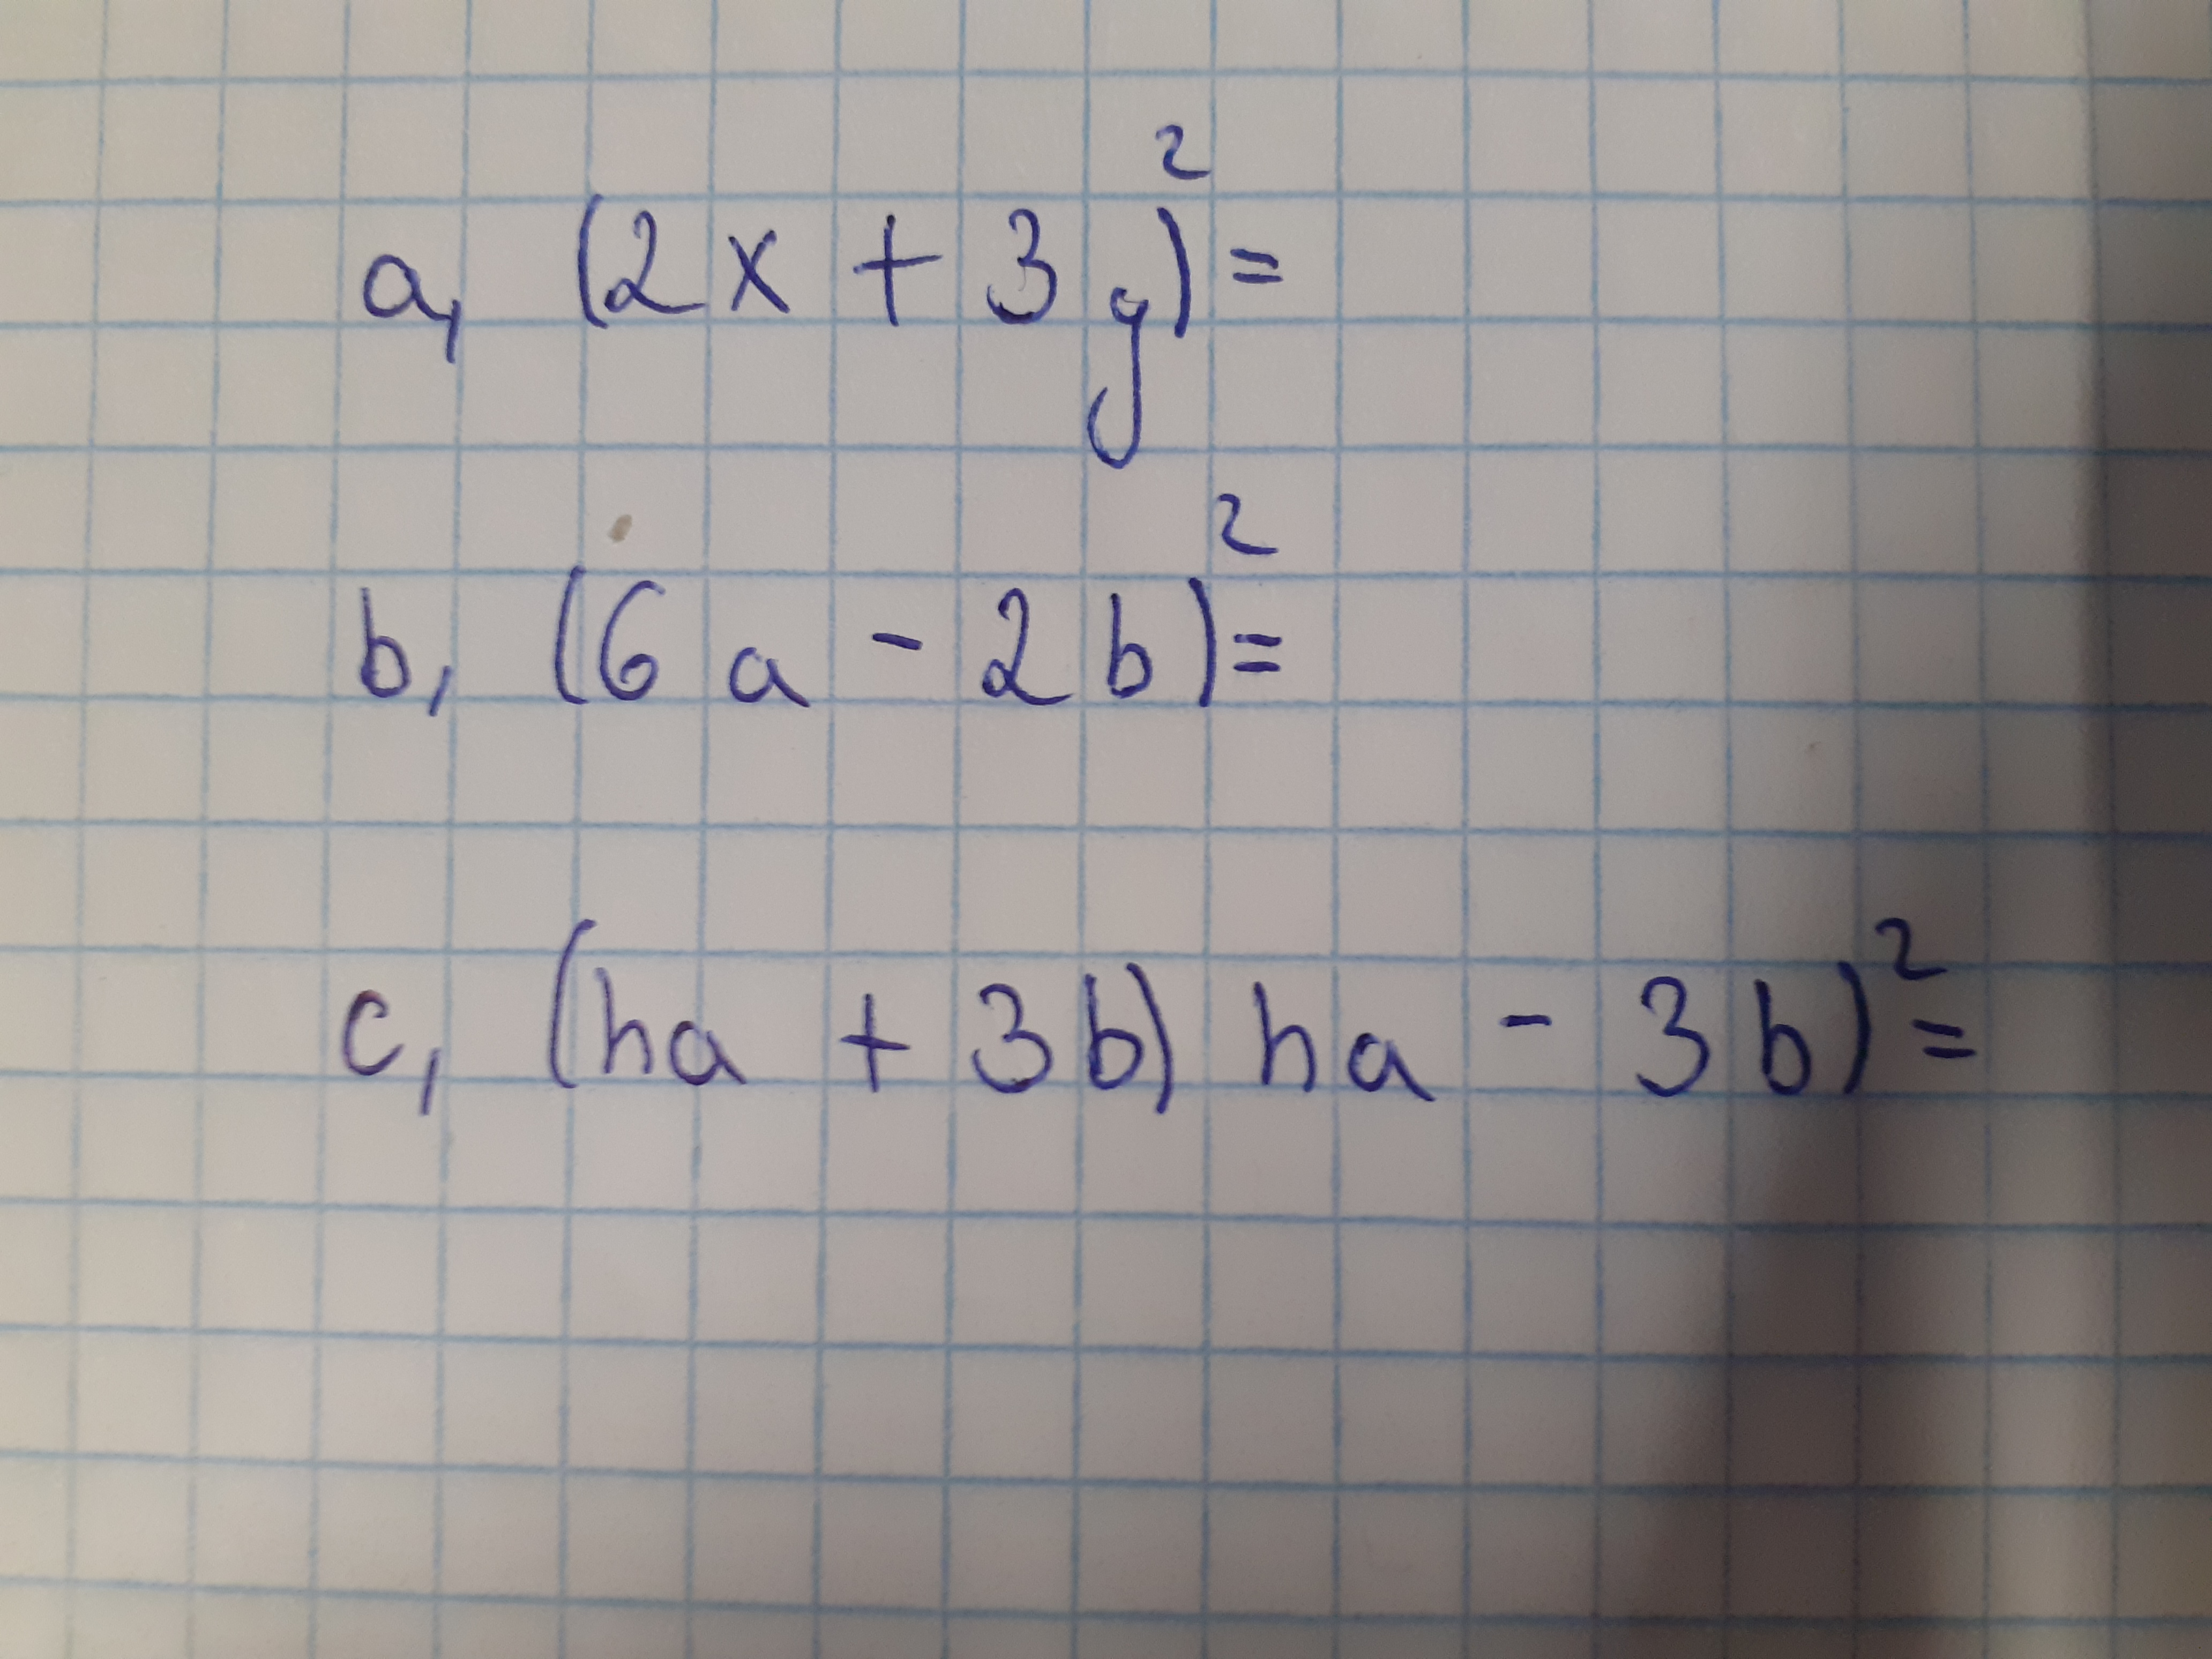 a, (2x + 3y)² =
b, (6a - 2b)² =
c, (ha + 3b) ha - 3b)² =